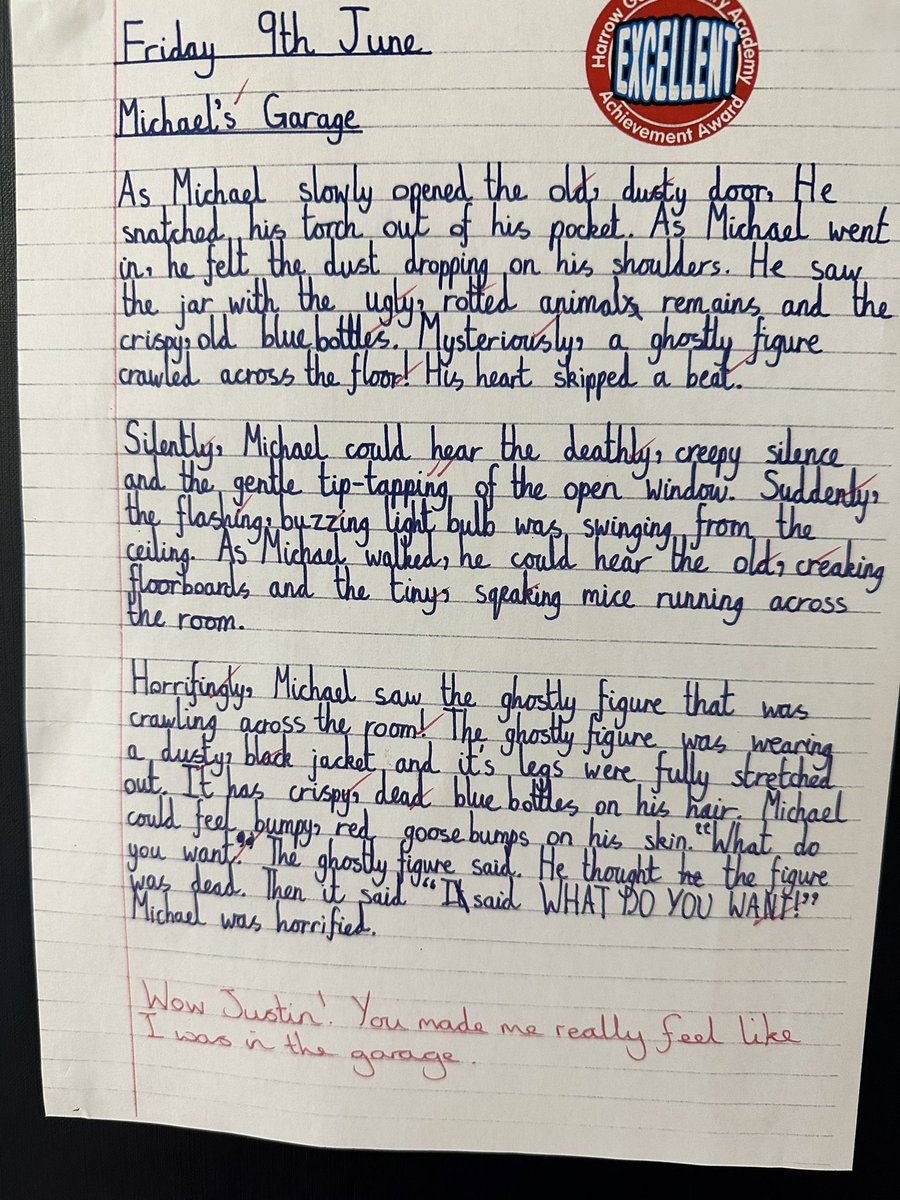 Friday 9th June
Harrow
Academy
EXCELLENT
Achievement Award
Michael's Garage
As Michael slowly opened the old, dusty door, He
snatched his torch out of his pocket. As Michael went
in, he felt the dust dropping on his shoulders. He saw
the jar with the ugly, rotted animals remains and the
crispy, old blue bottles. Mysteriously, a ghostly figure
crawled across the floor! His heart skipped a beat.
Silently, Michael could hear the deathly, creepy silence
and the gentle tip-tapping of the open window. Suddenly,
the flashing, buzzing light bulb was swinging from the
ceiling. As Michael walked, he could hear the old, creaking
floorboards and the tiny, sqeaking mice running across
the room.
Horrifingly, Michael saw the ghostly figure that was
crawling across the room! The ghostly figure was wearing
a dusty, black jacket and it's legs were fully stretched
out. It has crispy, dead blue bottles on his hair. Michael
could feel bumpy, red goosebumps on his skin. "What do
you want?" The ghostly figure said. He thought he the figure
was dead. Then it said "I said WHAT DO YOU WANT!"
Michael was horrified.
Wow Justin! You made me really feel like
I was in the garage.